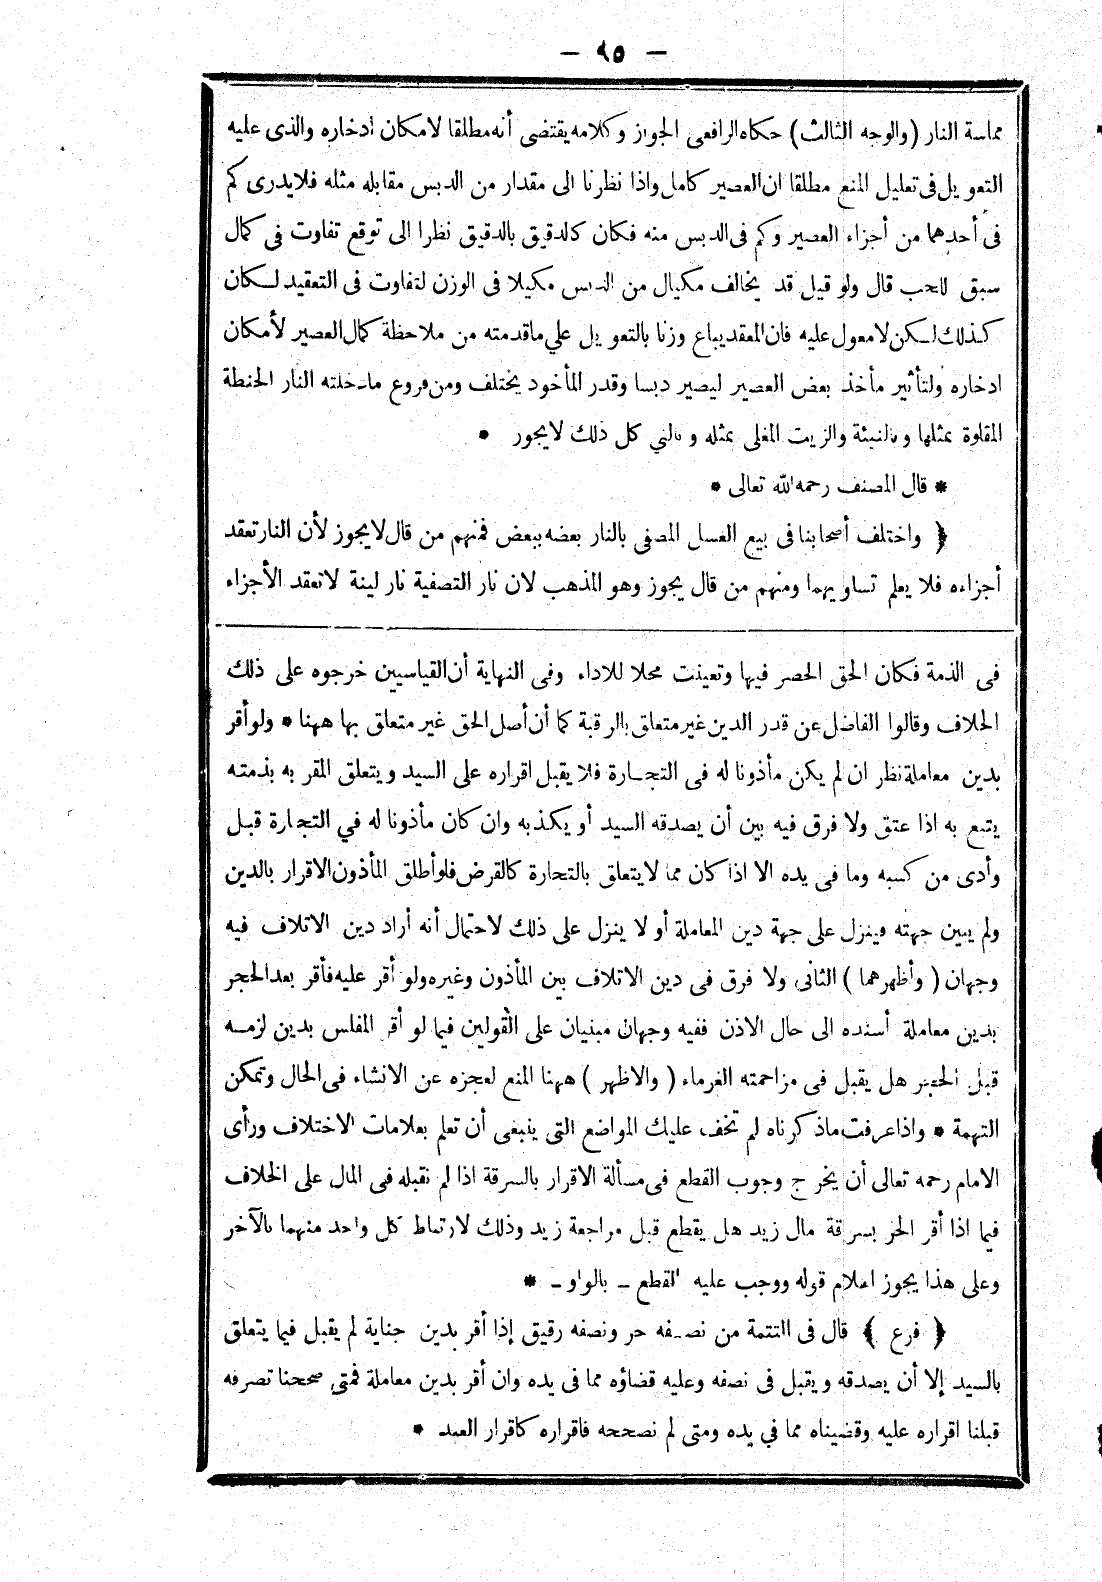 — ٩٥ —
مماسة النار (والوجه الثالث) حكاه الرافعى الجواز وكلامه يقتضى أنه مطلقا لامكان ادخاره والذى عليه
التعويل فى تعليل المنع مطلقا ان العصير كامل واذا نظرنا الى مقدار من الدبس مقابله مثله فلا يدرى كم
فى أحدهما من أجزاء العصير وكم فى الدبس منه فكان كالدقيق بالدقيق نظرا الى توقع تفاوت فى كمال
سبق للحب قال ولو قيل قد يخالف مكيال من الدبس مكيلا فى الوزن لتفاوت فى التعقيد لكان
كذلك لكن لا معول عليه فان المعقد يباع وزنا بالتعويل علي ما قدمته من ملاحظة كمال العصير لأمكان
ادخاره ولتأثير مأخذ بعض العصير ليصير دبسا وقدر المأخود يختلف ومن فروع مادخلته النار الحنطة
المقلوة بمثلها وبالنيئة والزيت المغلى بمثله وبالني كل ذلك لا يجوز *
* قال المصنف رحمه الله تعالى *
﴿ واختلف أصحابنا فى بيع العسل المصفى بالنار بعضه ببعض فمنهم من قال لا يجوز لأن النار تعقد
أجزاءه فلا يعلم تساويهما ومنهم من قال يجوز وهو المذهب لان نار التصفية نار لينة لا تعقد الأجزاء
فى الذمة فكان الحق انحصر فيها وتعينت محلا للاداء وفى النهاية أن القياسيين خرجوه على ذلك
الخلاف وقالوا الفاضل عن قدر الدين غير متعلق بالرقبة كما أن أصل الحق غير متعلق بها ههنا * ولو أقر
بدين معاملة نظر ان لم يكن مأذونا له فى التجارة فلا يقبل اقراره على السيد ويتعلق المقر به بذمته
يتبع به اذا عتق ولا فرق فيه بين أن يصدقه السيد أو يكذبه وان كان مأذونا له في التجارة قبل
وأدى من كسبه وما فى يده الا اذا كان مما لا يتعلق بالتجارة كالقرض فلو أطلق المأذون الاقرار بالدين
ولم يبين جهته فينزل على جهة دين المعاملة أو لا ينزل على ذلك لاحتمال أنه أراد دين الاتلاف فيه
وجهان (وأظهرهما) الثانى ولا فرق فى دين الاتلاف بين المأذون وغيره ولو أقر عليه فأقر بعد الحجر
بدين معاملة أسنده الى حال الاذن ففيه وجهان مبنيان على القولين فيما لو أقر المفلس بدين لزمه
قبل الحجر هل يقبل فى مزاحمته الغرماء (والاظهر) ههنا المنع لعجزه عن الانشاء فى الحال وتمكن
التهمة * واذا عرفت ماذكرناه لم تخف عليك المواضع التى ينبغى أن تعلم بعلامات الاختلاف ورأى
الامام رحمه تعالى أن يخرج وجوب القطع فى مسألة الاقرار بالسرقة اذا لم نقبله فى المال على الخلاف
فيما اذا أقر الحر بسرقة مال زيد هل يقطع قبل مراجعة زيد وذلك لارتباط كل واحد منهما بالآخر
وعلى هذا يجوز اعلام قوله ووجب عليه القطع ـ بالواو ـ *
﴿ فرع ﴾ قال فى التتمة من نصفه حر ونصفه رقيق إذا أقر بدين جناية لم يقبل فيما يتعلق
بالسيد إلا أن يصدقه ويقبل فى نصفه وعليه قضاؤه مما فى يده وان أقر بدين معاملة فمتى صححنا تصرفه
قبلنا اقراره عليه وقضيناه مما في يده ومتى لم نصححه فاقراره كاقرار العبد *